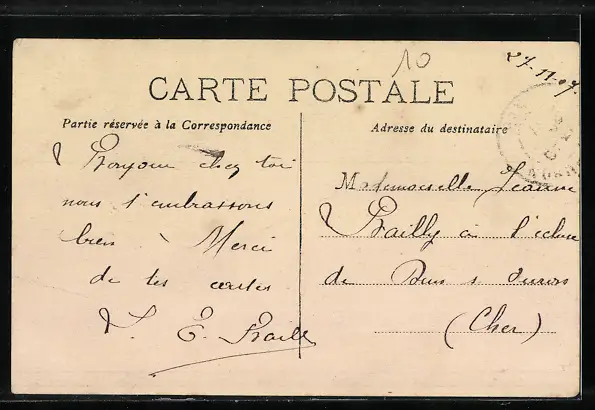 10
27-11-07.
CARTE POSTALE
Partie réservée à la Correspondance
Adresse du destinataire
Bonjour chez toi
nous t'embrassons
bien. Merci
de tes cartes
E. Bailly
Mademoiselle Jeanne
Bailly à l'écluse
de
(Cher)